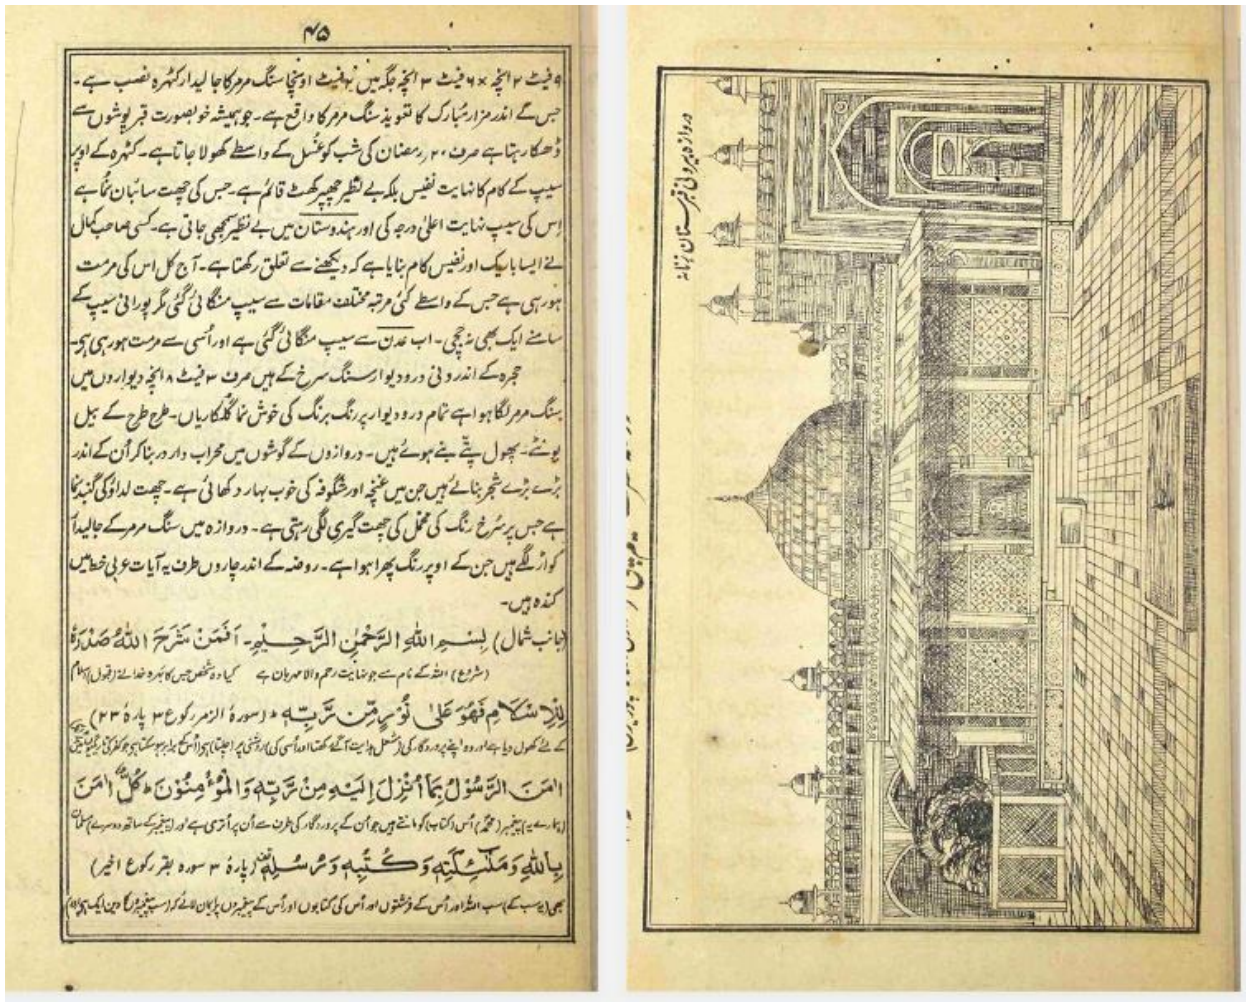 ۴۵
۹ فیٹ ۲ انچہ × ۶ فیٹ ۳ انچہ جگہ میں فیٹ اونچا سنگ مرمر کا جالیدار کٹہرہ نصب ہے۔
جس کے اندر مزار مُبارک کا تعویذ سنگ مرمر کا واقع ہے۔ جو ہمیشہ خوبصورت قبر پوشوں سے
ڈھکا رہتا ہے صرف ۲۰؍ رمضان کی شب کو غسل کے واسطے کھولا جاتا ہے۔ کٹہرہ کے اوپر
سیپ کے کام کا نہایت نفیس بلکہ بے نظیر چھپر کھٹ قائم ہے۔ جس کی چھت سائبان نُما ہے
اِس کی سیپ نہایت اعلیٰ درجہ کی اور ہندوستان میں بے نظیر سمجھی جاتی ہے۔ کسی صاحب کمال
نے ایسا باریک اور نفیس کام بنایا ہے کہ دیکھنے سے تعلق رکھتا ہے۔ آج کل اس کی مرمت
ہو رہی ہے جس کے واسطے کئی مرتبہ مختلف مقامات سے سیپ منگائی گئی مگر پورانی سیپ کے
سامنے ایک بھی نہ جچی۔ اب عدن سے سیپ منگائی گئی ہے اور اُسی سے مرمت ہو رہی ہی۔
حجرہ کے اندرونی در و دیوار سنگ سرخ کے ہیں صرف ۳ فیٹ ۸ انچہ دیواروں میں
سنگ مرمر لگا ہوا ہے تمام در و دیوار پر رنگ برنگ کی خوش نما گلکاریاں۔ طرح طرح کے بیل
بونٹے۔ پھول پتّے بنے ہوئے ہیں۔ دروازوں کے گوشوں میں محراب دار در بنا کر اُن کے اندر
بڑے بڑے شجر بنائے ہیں جن میں غنچہ اور شگوفہ کی خوب بہار دکھائی ہے۔ چھت لداؤ کی گنبد نما
ہے جس پر سُرخ رنگ کی مخمل کی چھت گیری لگی رہتی ہے۔ دروازہ میں سنگ مرمر کے جالیدار
کواڑ لگے ہیں جن کے اوپر رنگ پھرا ہوا ہے۔ روضہ کے اندر چاروں طرف یہ آیات عربی خط میں
کندہ ہیں۔
(جانب شمال) بِسْمِ اللهِ الرَّحْمٰنِ الرَّحِيْمِ۔ اَفَمَنْ شَرَحَ اللهُ صَدْرَهٗ
(شروع) اللہ کے نام سے جو نہایت رحم والا مہربان ہے کیا وہ شخص جس کا خدا نے (قبول) اسلام
لِلْاِسْلَامِ فَهُوَ عَلٰى نُوْرٍ مِّنْ رَّبِّهٖ ؕ (سورۂ الزمر رکوع ۳ پارہ ۲۳)
کے لئے کھول دیا ہے اور وہ اپنے پروردگار کی
اٰمَنَ الرَّسُوْلُ بِمَا اُنْزِلَ اِلَيْهِ مِنْ رَّبِّهٖ وَالْمُؤْمِنُوْنَ ؕ كُلٌّ اٰمَنَ
(ہمارے یہ) پیغمبر (محمدؐ) اُس (کتاب) کو مانتے ہیں جو اُن کے پروردگار کی طرف سے اُن پر اُتری ہے اور (پیغمبر کے ساتھ دوسرے) مسلمان
بِاللهِ وَمَلٰٓئِكَتِهٖ وَكُتُبِهٖ وَرُسُلِهٖ (پارۂ ۳ سورہ بقر رکوع اخیر)
بھی (یہ سب کے) سب اللہ اور اُس کے فرشتوں اور اُس کی کتابوں اور اُس کے پیغمبروں پر ایمان لائے کہ (سب پیغمبروں کا دین ایک ہی)
دروازہ بیرونی قبرستان زنانہ